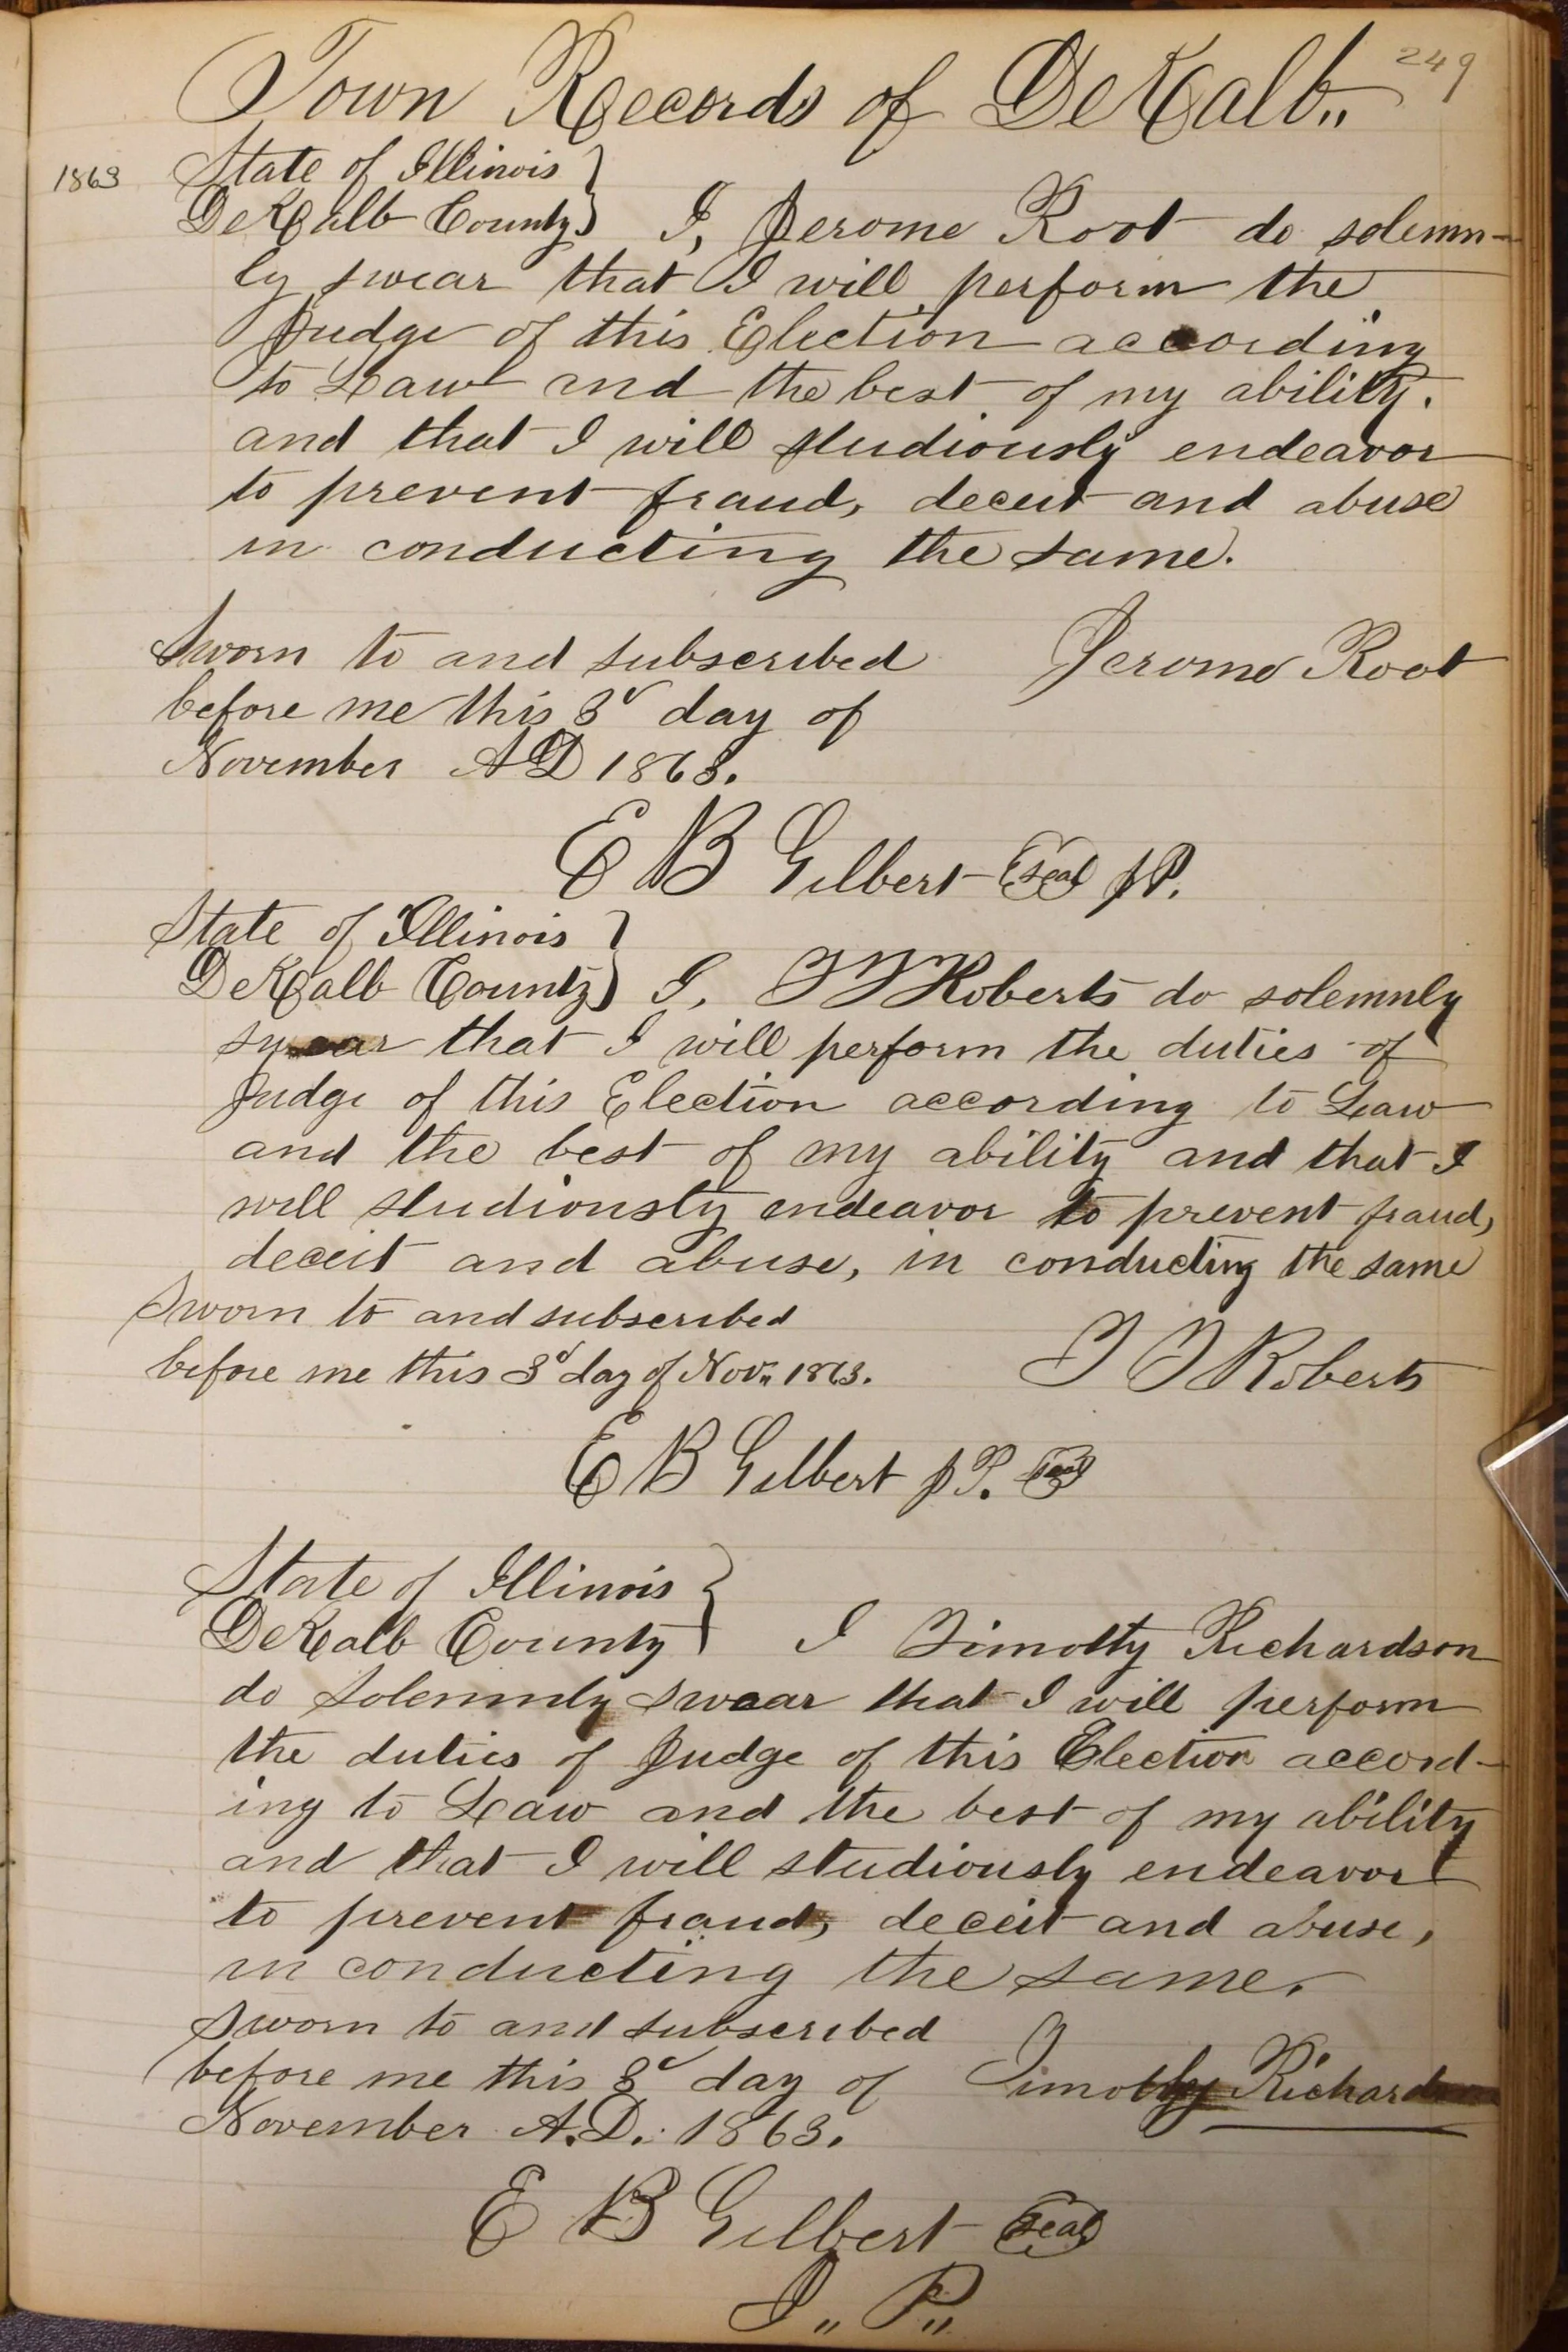 249
Town Records of DeKalb"
1863
State of Illinois }
DeKalb County } I, Jerome Root do solemn-
ly swear that I will perform the
Judge of this Election according
to Law and the best of my ability.
and that I will studiously endeavor
to prevent fraud, deceit and abuse
in conducting the same.
Sworn to and subscribed Jerome Root
before me this 3d day of
November AD 1863.
E B Gilbert (Seal) JP.
State of Illinois }
DeKalb County } I, T T Roberts do solemnly
swear that I will perform the duties of
Judge of this Election according to Law
and the best of my ability and that I
will studiously endeavor to prevent fraud,
deceit and abuse, in conducting the same
Sworn to and subscribed
before me this 3d day of Nov" 1863. T T Roberts
E B Gilbert JP. (Seal)
State of Illinois }
DeKalb County } I Timothy Richardson
do solemnly swear that I will perform
the duties of Judge of this Election accord-
ing to Law and the best of my ability
and that I will studiously endeavor
to prevent fraud, deceit and abuse,
in conducting the same.
Sworn to and subscribed
before me this 3d day of Timothy Richardson
November A.D. 1863.
E B Gilbert (Seal)
J" P"